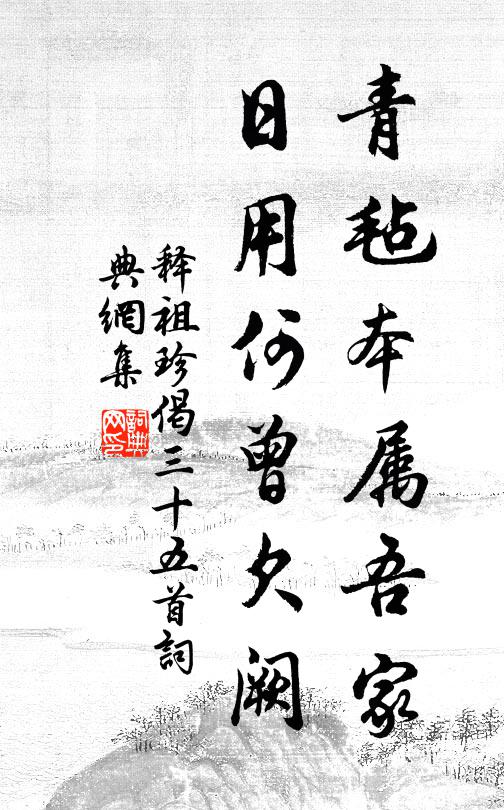 青毡本属吾家
日用何曾欠阙
释祖珍偈三十五首詞
典網集
詞典網印